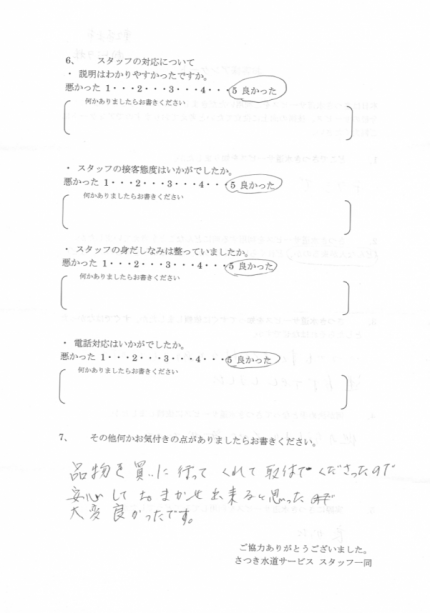 6、 スタッフの対応について
・ 説明はわかりやすかったですか。
悪かった 1・・・2・・・3・・・4・・・5 良かった
何かありましたらお書きください
・ スタッフの接客態度はいかがでしたか。
悪かった 1・・・2・・・3・・・4・・・5 良かった
何かありましたらお書きください
・ スタッフの身だしなみは整っていましたか。
悪かった 1・・・2・・・3・・・4・・・5 良かった
何かありましたらお書きください
・ 電話対応はいかがでしたか。
悪かった 1・・・2・・・3・・・4・・・5 良かった
何かありましたらお書きください
7、 その他何かお気付きの点がありましたらお書きください。
品物を買いに行って くれて 取付て くださったので
安心して おまかせ出来ると思ったので
大変良かったです。
ご協力ありがとうございました。
さつき水道サービス スタッフ一同